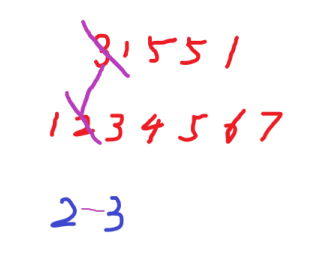 3 1 5 5 1
1 2 3 4 5 6 7
2-3